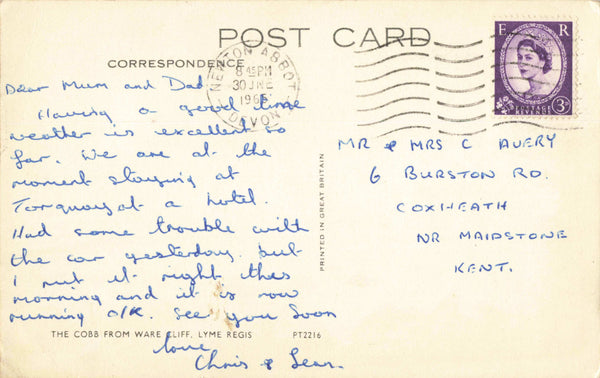 POST CARD
CORRESPONDENCE
NEWTON ABBOT
8 45 PM
30 JNE
DEVON
E R
POSTAGE
REVENUE
3D
Dear Mum and Dad
Having a good time
weather is excellent so
far. We are at the
moment staying at
Torquay at a hotel.
Had some trouble with
the car yesterday. but
I put it right this
morning and it is now
running O/K. See you soon
love
Chris &
PRINTED IN GREAT BRITAIN
MR & MRS C AVERY
6 BURSTON RD.
COXHEATH
NR MAIDSTONE
KENT.
THE COBB FROM WARE CLIFF, LYME REGIS PT2216